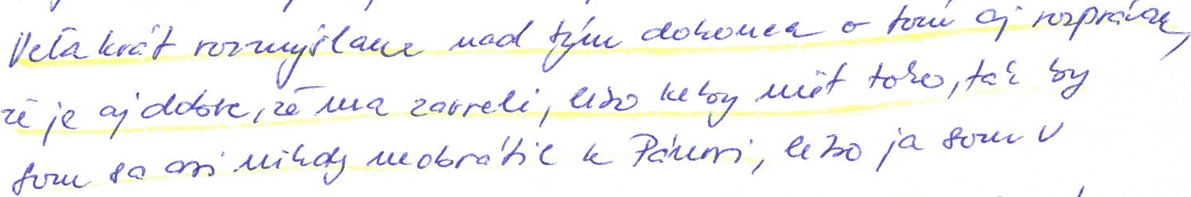 Veľa krát rozmýšlam nad tým dokonca o tom aj rozprávam,
že je aj dobre, že ma zavreli, lebo keby niet toho, tak by
som sa asi nikdy neobrátil k Pánovi, lebo ja som v